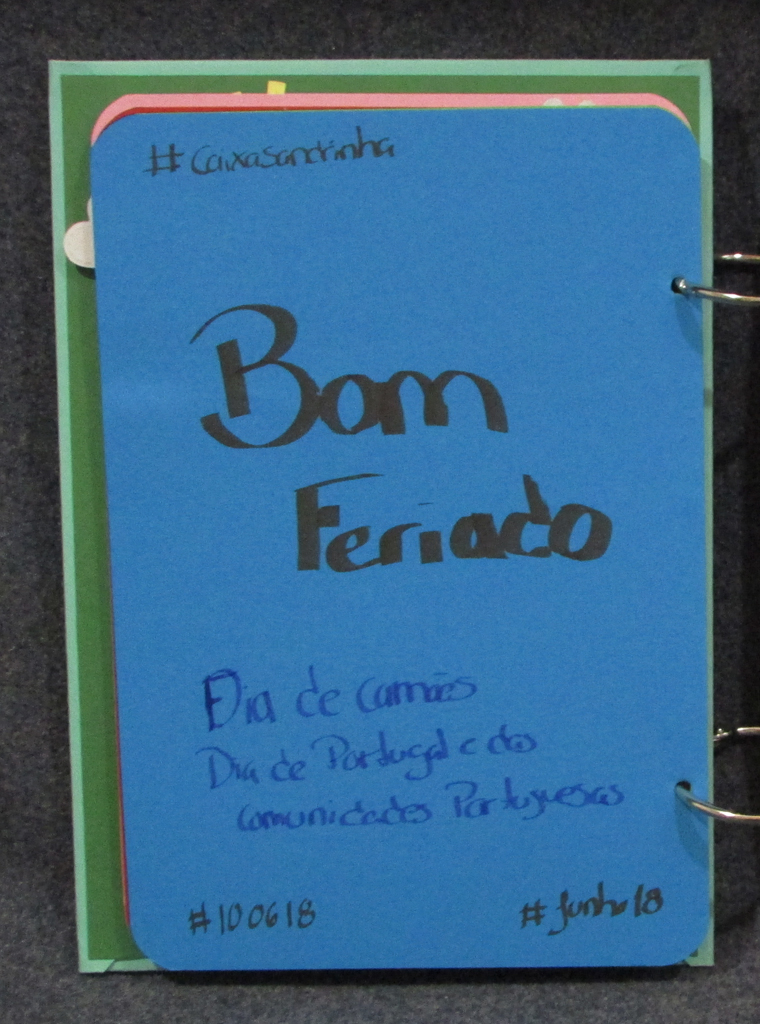 #caixasandrinha
Bom
Feriado
Dia de camões
Dia de Portugal e das
comunidades Portuguesas
#100618
#Junho18